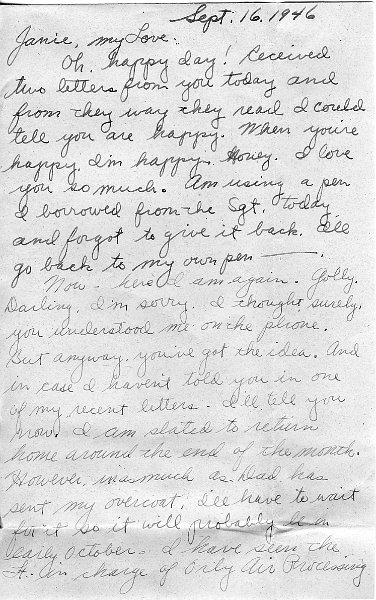 Sept. 16, 1946
Janie, my Love.
Oh, happy day! Received
two letters from you today and
from they way they read I could
tell you are happy. When you're
happy, I'm happy. Honey. I love
you so much. Am using a pen
I borrowed from the Sgt. today
and forgot to give it back. I'll
go back to my own pen —.
Now - here I am again. Golly,
Darling, I'm sorry. I thought, surely,
you understood me on the phone.
But anyway, you've got the idea. And
in case I haven't told you in one
of my recent letters - I'll tell you
now. I am slated to return
home around the end of the month.
However, inasmuch as Dad has
sent my overcoat, I'll have to wait
for it so it will probably be in
early October. I have seen the
Lt. in charge of Orly Air Processing